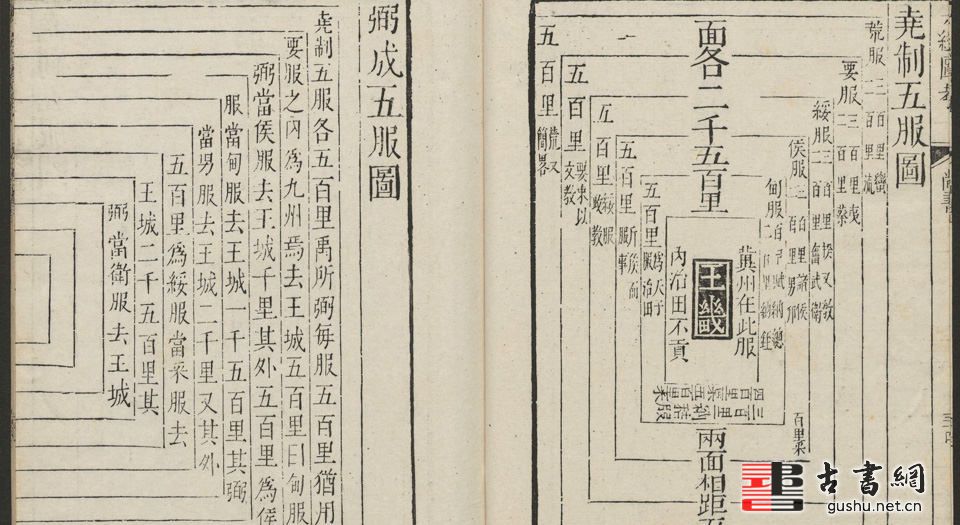 堯制五服圖
荒服
二百里蠻
二百里流
要服
三百里夷
二百里蔡
綏服
三百里揆文教
二百里奮武衛
侯服
二百里男邦
甸服
冀州在此服
王畿
內治田不貢
面各二千五百里
兩面相距五
五百里
為天子
服治田
五百里
服事
五百里
綏服
政教
五百里
要束以
文教
五百里
荒又
簡畧
百里采
弼成五服圖
堯制五服各五百里禹所弼每服五百里猶用
要服之內為九州焉去王城五百里曰甸服
弼當侯服去王城千里其外五百里為侯
服當甸服去王城一千五百里其弼
當男服去王城二千里又其外
五百里為綏服當采服去
王城二千五百里其
弼當衛服去王城
古書網
gushu.net.cn